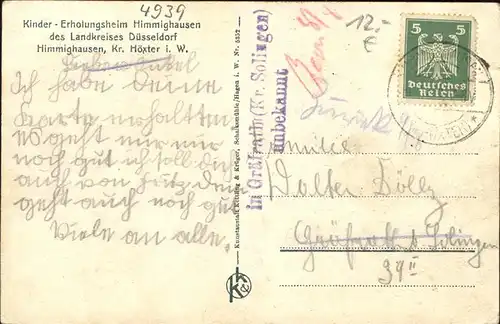 4939
Kinder - Erholungsheim Himmighausen
des Landkreises Düsseldorf
Himmighausen, Kr. Höxter i. W.
Lieber Onkel
Ich habe deine
Karte erhaltten
Es geht mir nur
noch gut ich soll dich
auch von Fritz dem
geht auch noch gut
Viele an alle.
Kunstanstalt Kettling & Krüger, Schalksmühle/Hagen i. W. Nr. 5152
in Gräfrath (Kr. Solingen)
unbekannt
12.-
€
Zurück
5 5
Deutsches
Reich
Familie
Walter Dölly
Gräfrath b Solingen
39 II